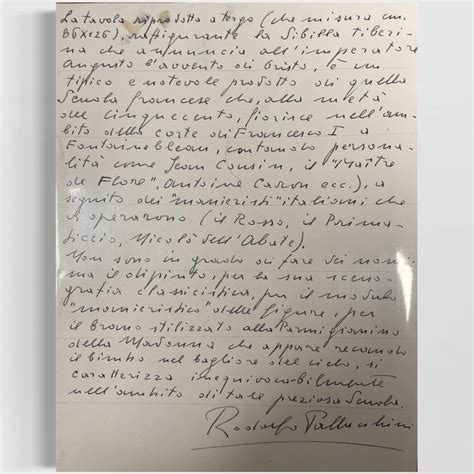 La tavola riprodotta a tergo (che misura cm.
86x125), raffigurante la Sibilla tiberi-
na che annuncia all'imperatore
Augusto l'avvento di Cristo, è un
tipico e notevole prodotto di quella
Scuola francese che, alla metà
del Cinquecento, fiorisce nell'am-
bito della corte di Francesco I a
Fontainebleau, contando persona-
lità come Jean Cousin, il "Maître
de Flore", Antoine Caron ecc.), a
seguito dei "manieristi" italiani che
vi operarono (il Rosso, il Prima-
ticcio, Nicolò dell'Abate).
Non sono in grado di fare dei nomi,
ma il dipinto, per la sua sceno-
grafia classicistica, per il modulo
"manieristico" delle figure, per
il brano stilizzato alla Parmigianino
della Madonna che appare recando
il bimbo nel bagliore del cielo, si
caratterizza inequivocabilmente
nell'ambito di tale preziosa Scuola.
Rodolfo Pallucchini